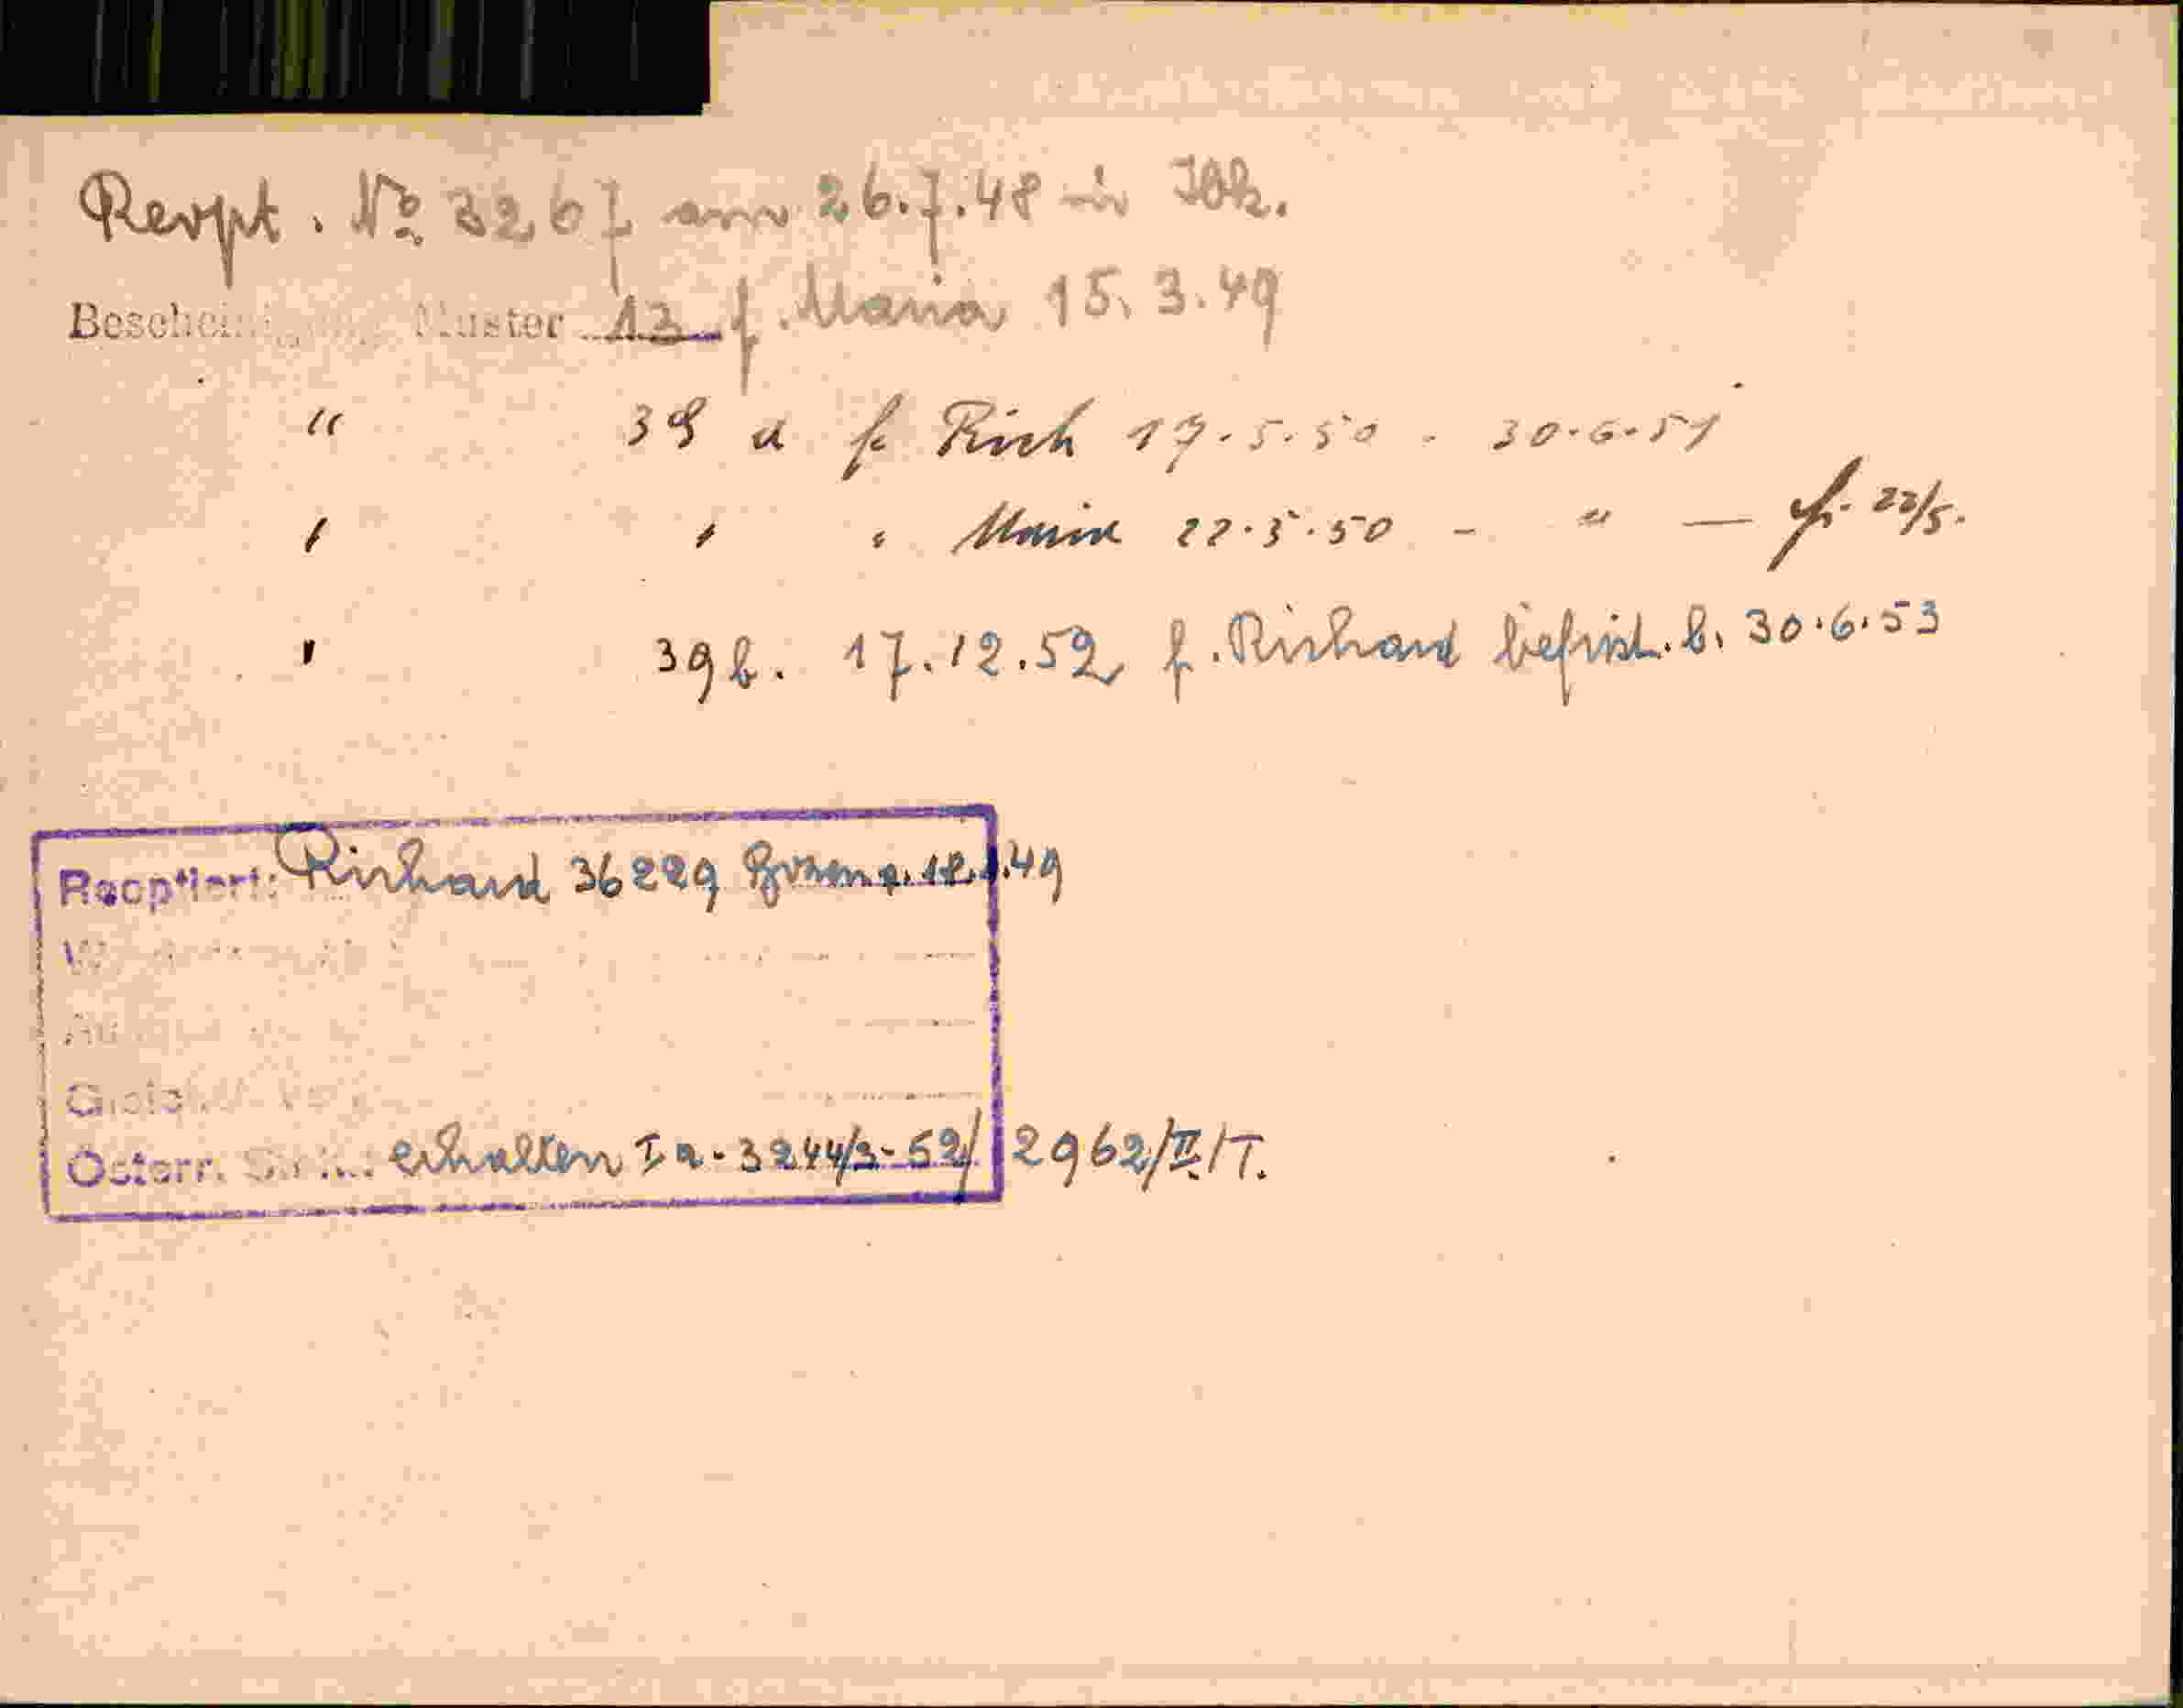 Reopt. No 3267 am 26.7.48 in Ibk.
Bescheinigung Muster 13 f. Maria 15.3.49
" 39 a f. Rich 17.5.50 - 30.6.51
" " " Maria 22.5.50 - " — 22/5.
" 39 b. 17.12.52 f. Richard befrist. b. 30.6.53
Reoptiert: Richard 36229 Bozen 18. .49
Österr. erhalten Ia-3244/3-52/ 2962/II/T.